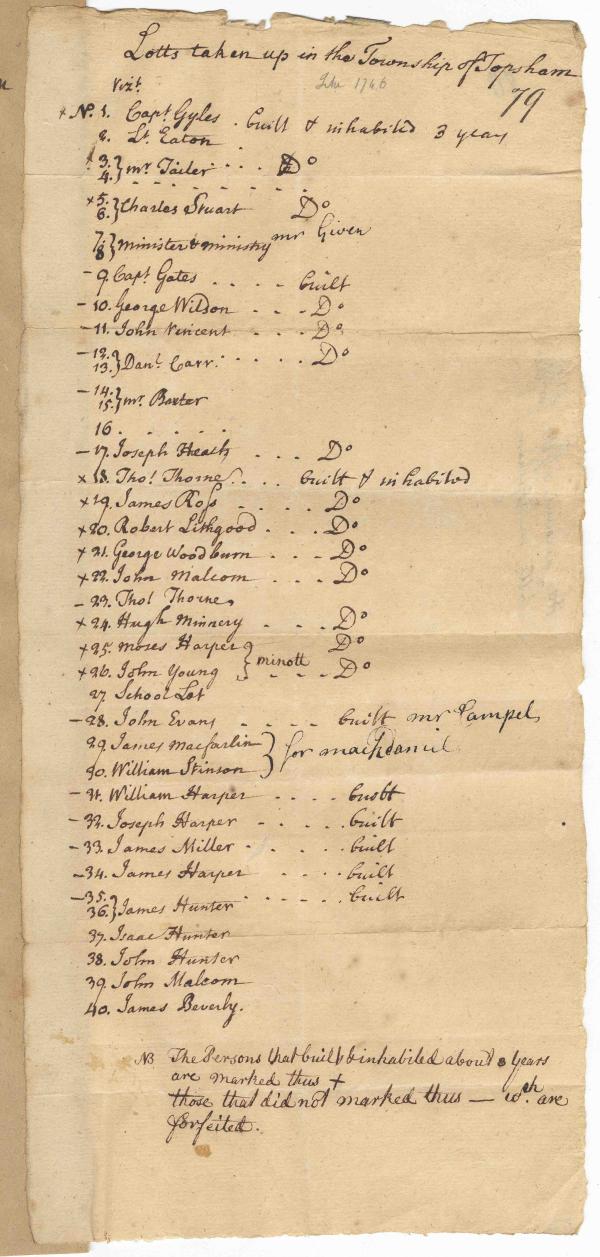 Lotts taken up in the Township of Topsham
Vizt. 1746
79
+ No. 1. Capt. Gyles . built & inhabited 3 years
2. Lt. Eaton
+ 3. } mr. Tailer . . . Do
4.
+5. } Charles Stuart Do
6.
7. } Minister & ministry mr Given
8
- 9. Capt. Gates . . . . built
- 10. George Wilson . . . Do
- 11. John Vincent . . . Do
- 12. } Danl. Carr . . . . . Do
13.
- 14. } mr. Baxter
15.
16 . . . . . .
- 17. Joseph Heath . . . Do
+ 18. Thos. Thorne . . . built & inhabited
+ 19. James Ross . . . . Do
+ 20. Robert Lithgood . . . Do
+ 21. George Woodburn . . . Do
+ 22. John Malcom . . . Do
- 23. Thos. Thorne
+ 24. Hugh Minnery . . . Do
+ 25. Moses Harper } minott Do
+ 26. John Young . . . . Do
27. School Lot
- 28. John Evans . . . . built mr Campel
29. James Macfarlin } for mackdaniel
30. William Stinson
- 31. William Harper . . . . built
- 32. Joseph Harper . . . . built
- 33. James Miller . . . . built
- 34. James Harper . . . . built
- 35. } James Hunter . . . . . built
36.
37. Isaac Hunter
38. John Hunter
39. John Malcom
40. James Beverly.
NB The Persons that built & inhabited about 3 years
are marked thus +
those that did not marked thus — wch. are
forfeited.